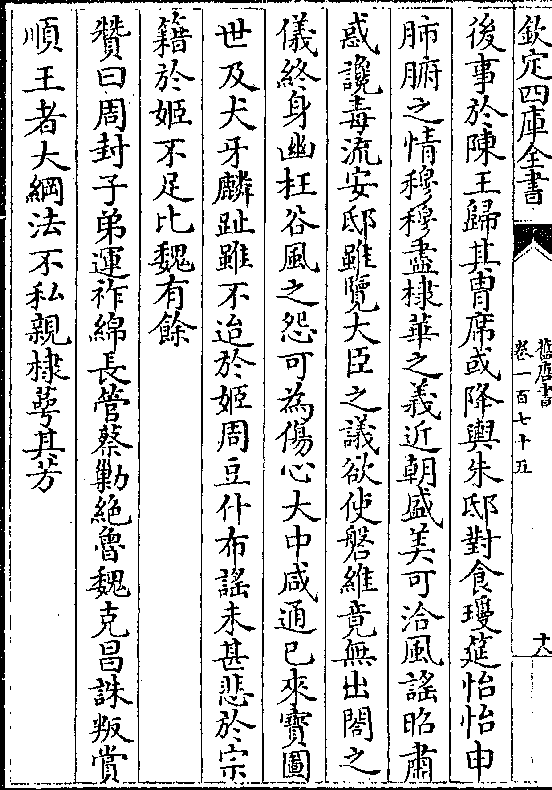 欽定四庫全書
舊唐書
卷一百七十五
十六
後事於陳王歸其胄席或降輿朱邸對食瓊筵怡怡申
肺腑之情穆穆盡棣華之義近朝盛美可洽風謠昭肅
惑讒毒流安邸雖覽大臣之議欲使磐維竟無出閤之
儀終身幽枉谷風之怨可為傷心大中咸通已來寶圖
世及犬牙麟趾雖不迨於姬周豆什布謠未甚悲於宗
籍於姬不足比魏有餘
贊曰周封子弟運祚綿長管蔡勦絕魯魏克昌誅叛賞
順王者大綱法不私親棣萼其芳